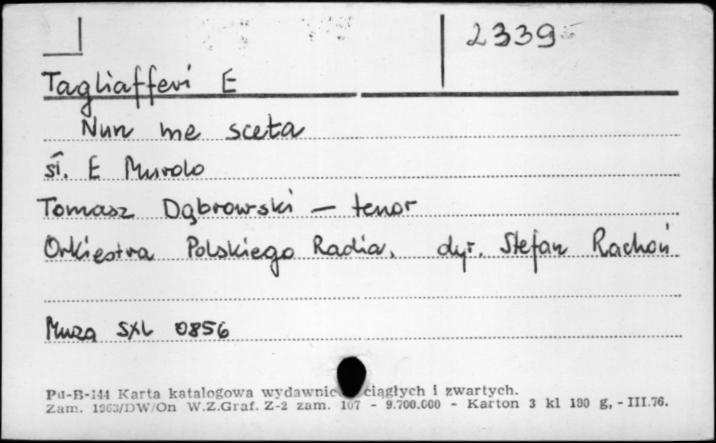 2339
Tagliafferi E
Nun me sceta
sł. E Murolo
Tomasz Dąbrowski - tenor
Orkiestra Polskiego Radia, dyr. Stefan Rachoń
Muza SXL 0856
Pu-B-144 Karta katalogowa wydawnic ciągłych i zwartych.
Zam. 1963/DW/On W.Z.Graf. Z-2 zam. 107 - 9.700.000 - Karton 3 kl 180 g, - III.76.